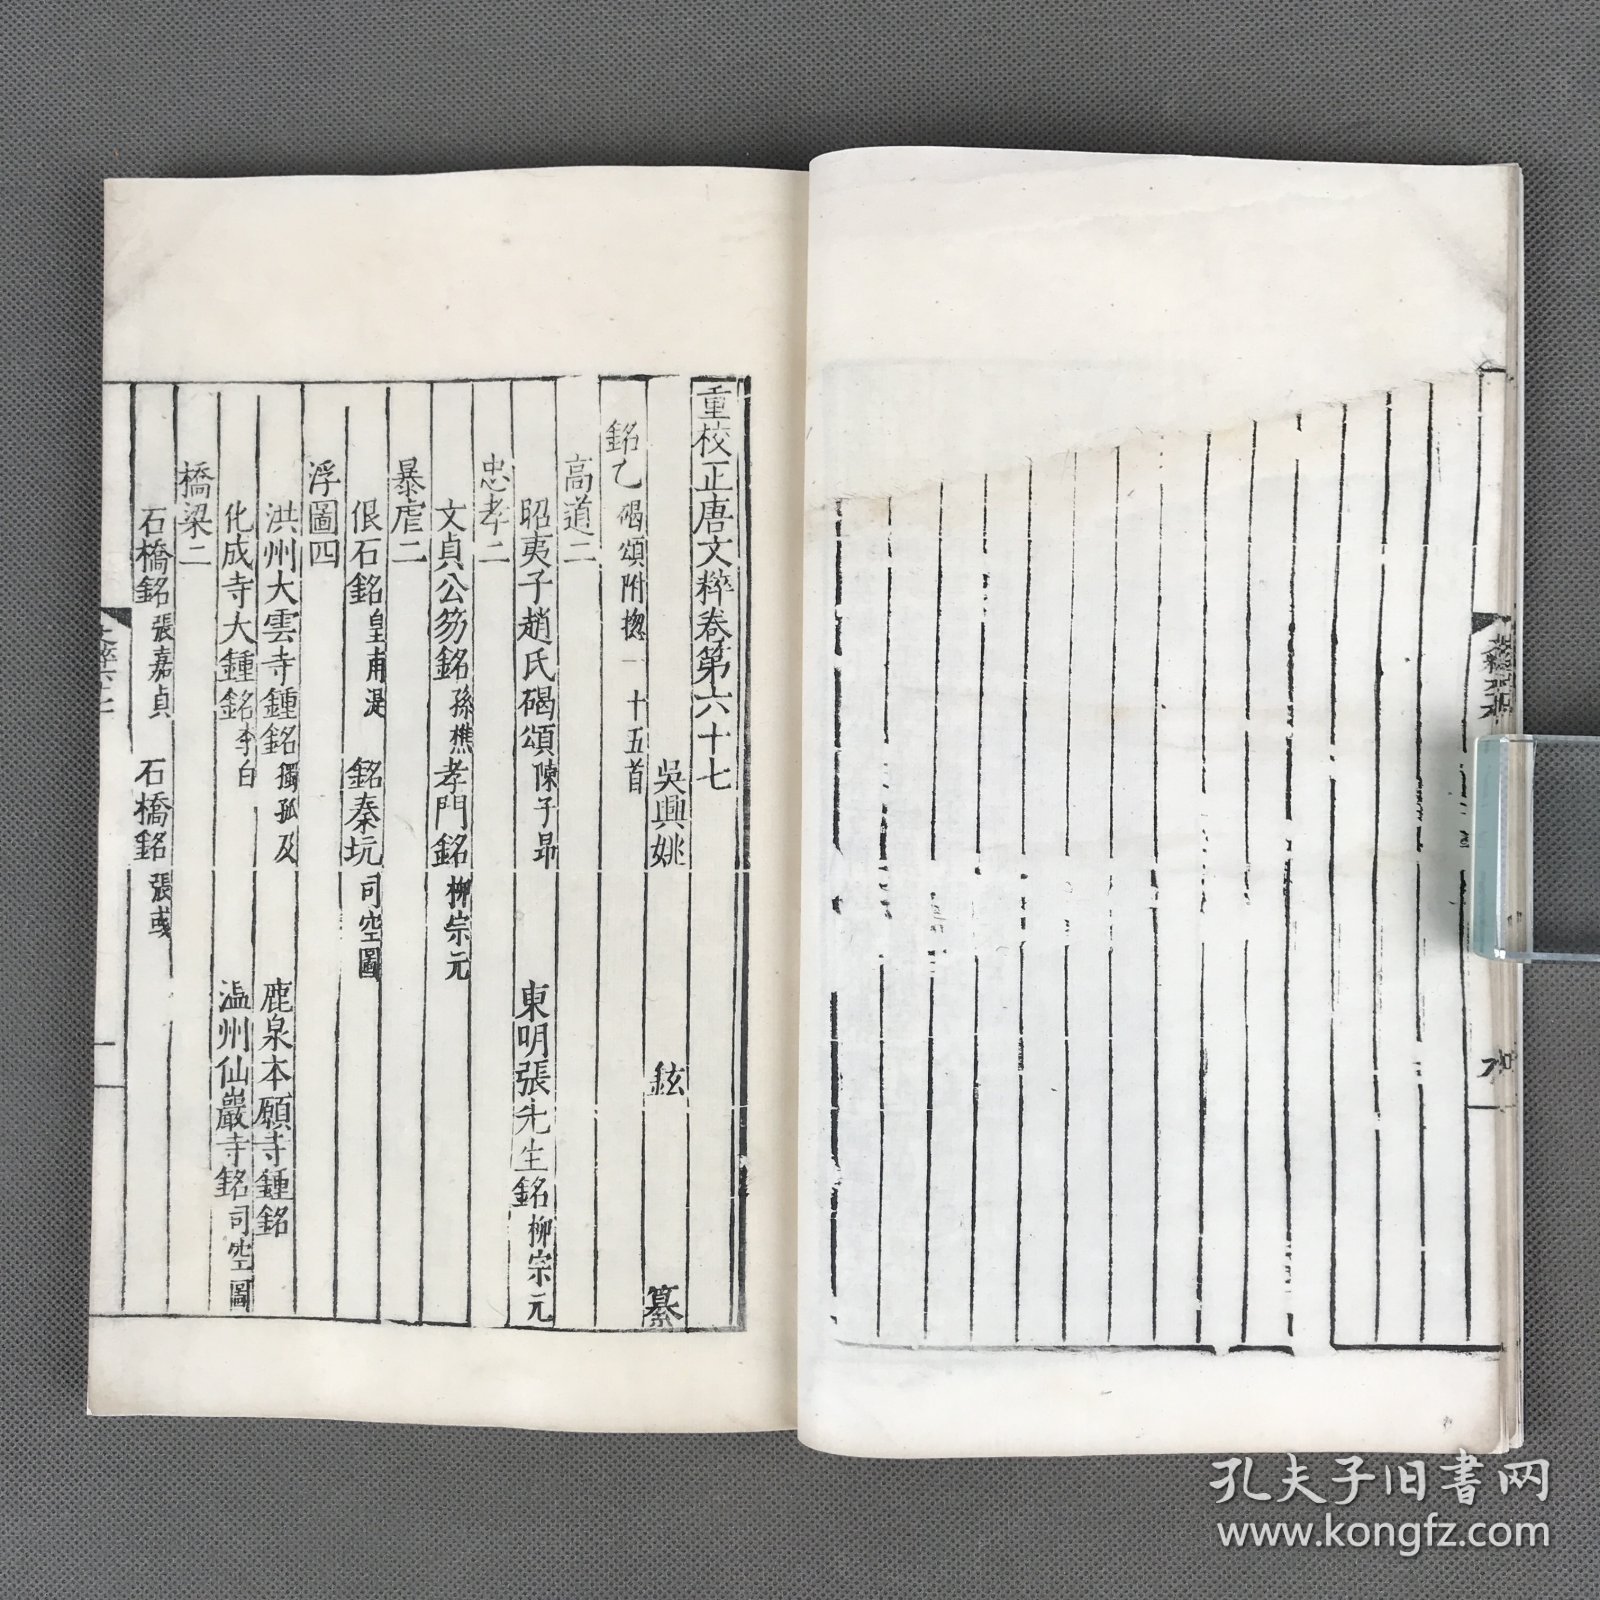 重校正唐文粹卷第六十七
吳興姚 鉉 纂
銘乙 碣頌附摠一十五首
高道二
昭夷子趙氏碣頌 陳子昂 東明張先生銘 柳宗元
忠孝二
文貞公笏銘 孫樵 孝門銘 柳宗元
暴虐二
佷石銘 皇甫湜 銘秦坑 司空圖
浮圖四
洪州大雲寺鍾銘 獨孤及 鹿泉本願寺鍾銘
化成寺大鍾銘 李白 溫州仙巖寺銘 司空圖
橋梁二
石橋銘 張嘉貞 石橋銘 張彧
孔夫子旧书网
www.kongfz.com